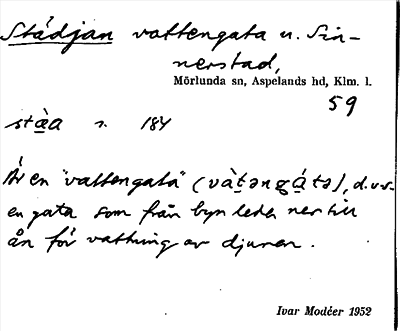 Städjan vattengata n. Sin-
nerstad,
Mörlunda sn, Aspelands hd, Klm. l.
59
stä̀a s. 184
Är en "vattengata" (và̀təngá̀tə), d.v.s.
en gata som från byn leder ner till
ån för vattning av djuren.
Ivar Modéer 1952